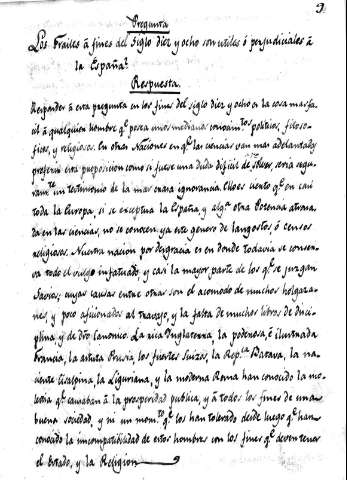 9
Pregunta
Los Frailes â fines del Siglo diez y ocho son utiles ô perjudiciales â
la España?
Respuesta.
Responder â esta pregunta en los fines del siglo diez y ocho es la cosa mas fa-
cil â qualquier hombre qe posea unos medianos conocimtos politicos, filoso-
ficos, y religiosos. En otras Naciones en qe las ciencias van mas adelantadas
proferir esta proposicion como si fuese una duda dificil de solver, seria segu-
ramte un testimonio de la mas crasa ignorancia. Ello es cierto qe en casi
toda la Europa, si se exceptua la España, y alga otra Potencia atrasa-
da en las ciencias, no se conocen ya este genero de langostas, ô censos
religiosos. Nuestra nacion por desgracia es en donde todavia se conser-
va todo el vulgo infatuado y casi la mayor parte de los qe se juzgan
Savios; cuyas causas entre otras son el acomodo de muchos holgaza-
nes, y poco aficionados al travajo, y la falta de muchos libros de disci-
plina, y de dro Canonico. La rica Ynglaterra, la poderosa, ê ilustrada
Francia, la astuta Prusia, los fuertes Suizos, la Repca Batava, la na-
ciente Cisalpina, la Liguriana, y la moderna Roma han conocido la mo-
lestia qe causaban â la prosperidad publica, y â todos los fines de una
buena sociedad, y ni un momto qe los han tolerado desde luego qe han
conocido la incompatibilidad de estos hombres con los fines qe deven tener
el Estado, y la Religion